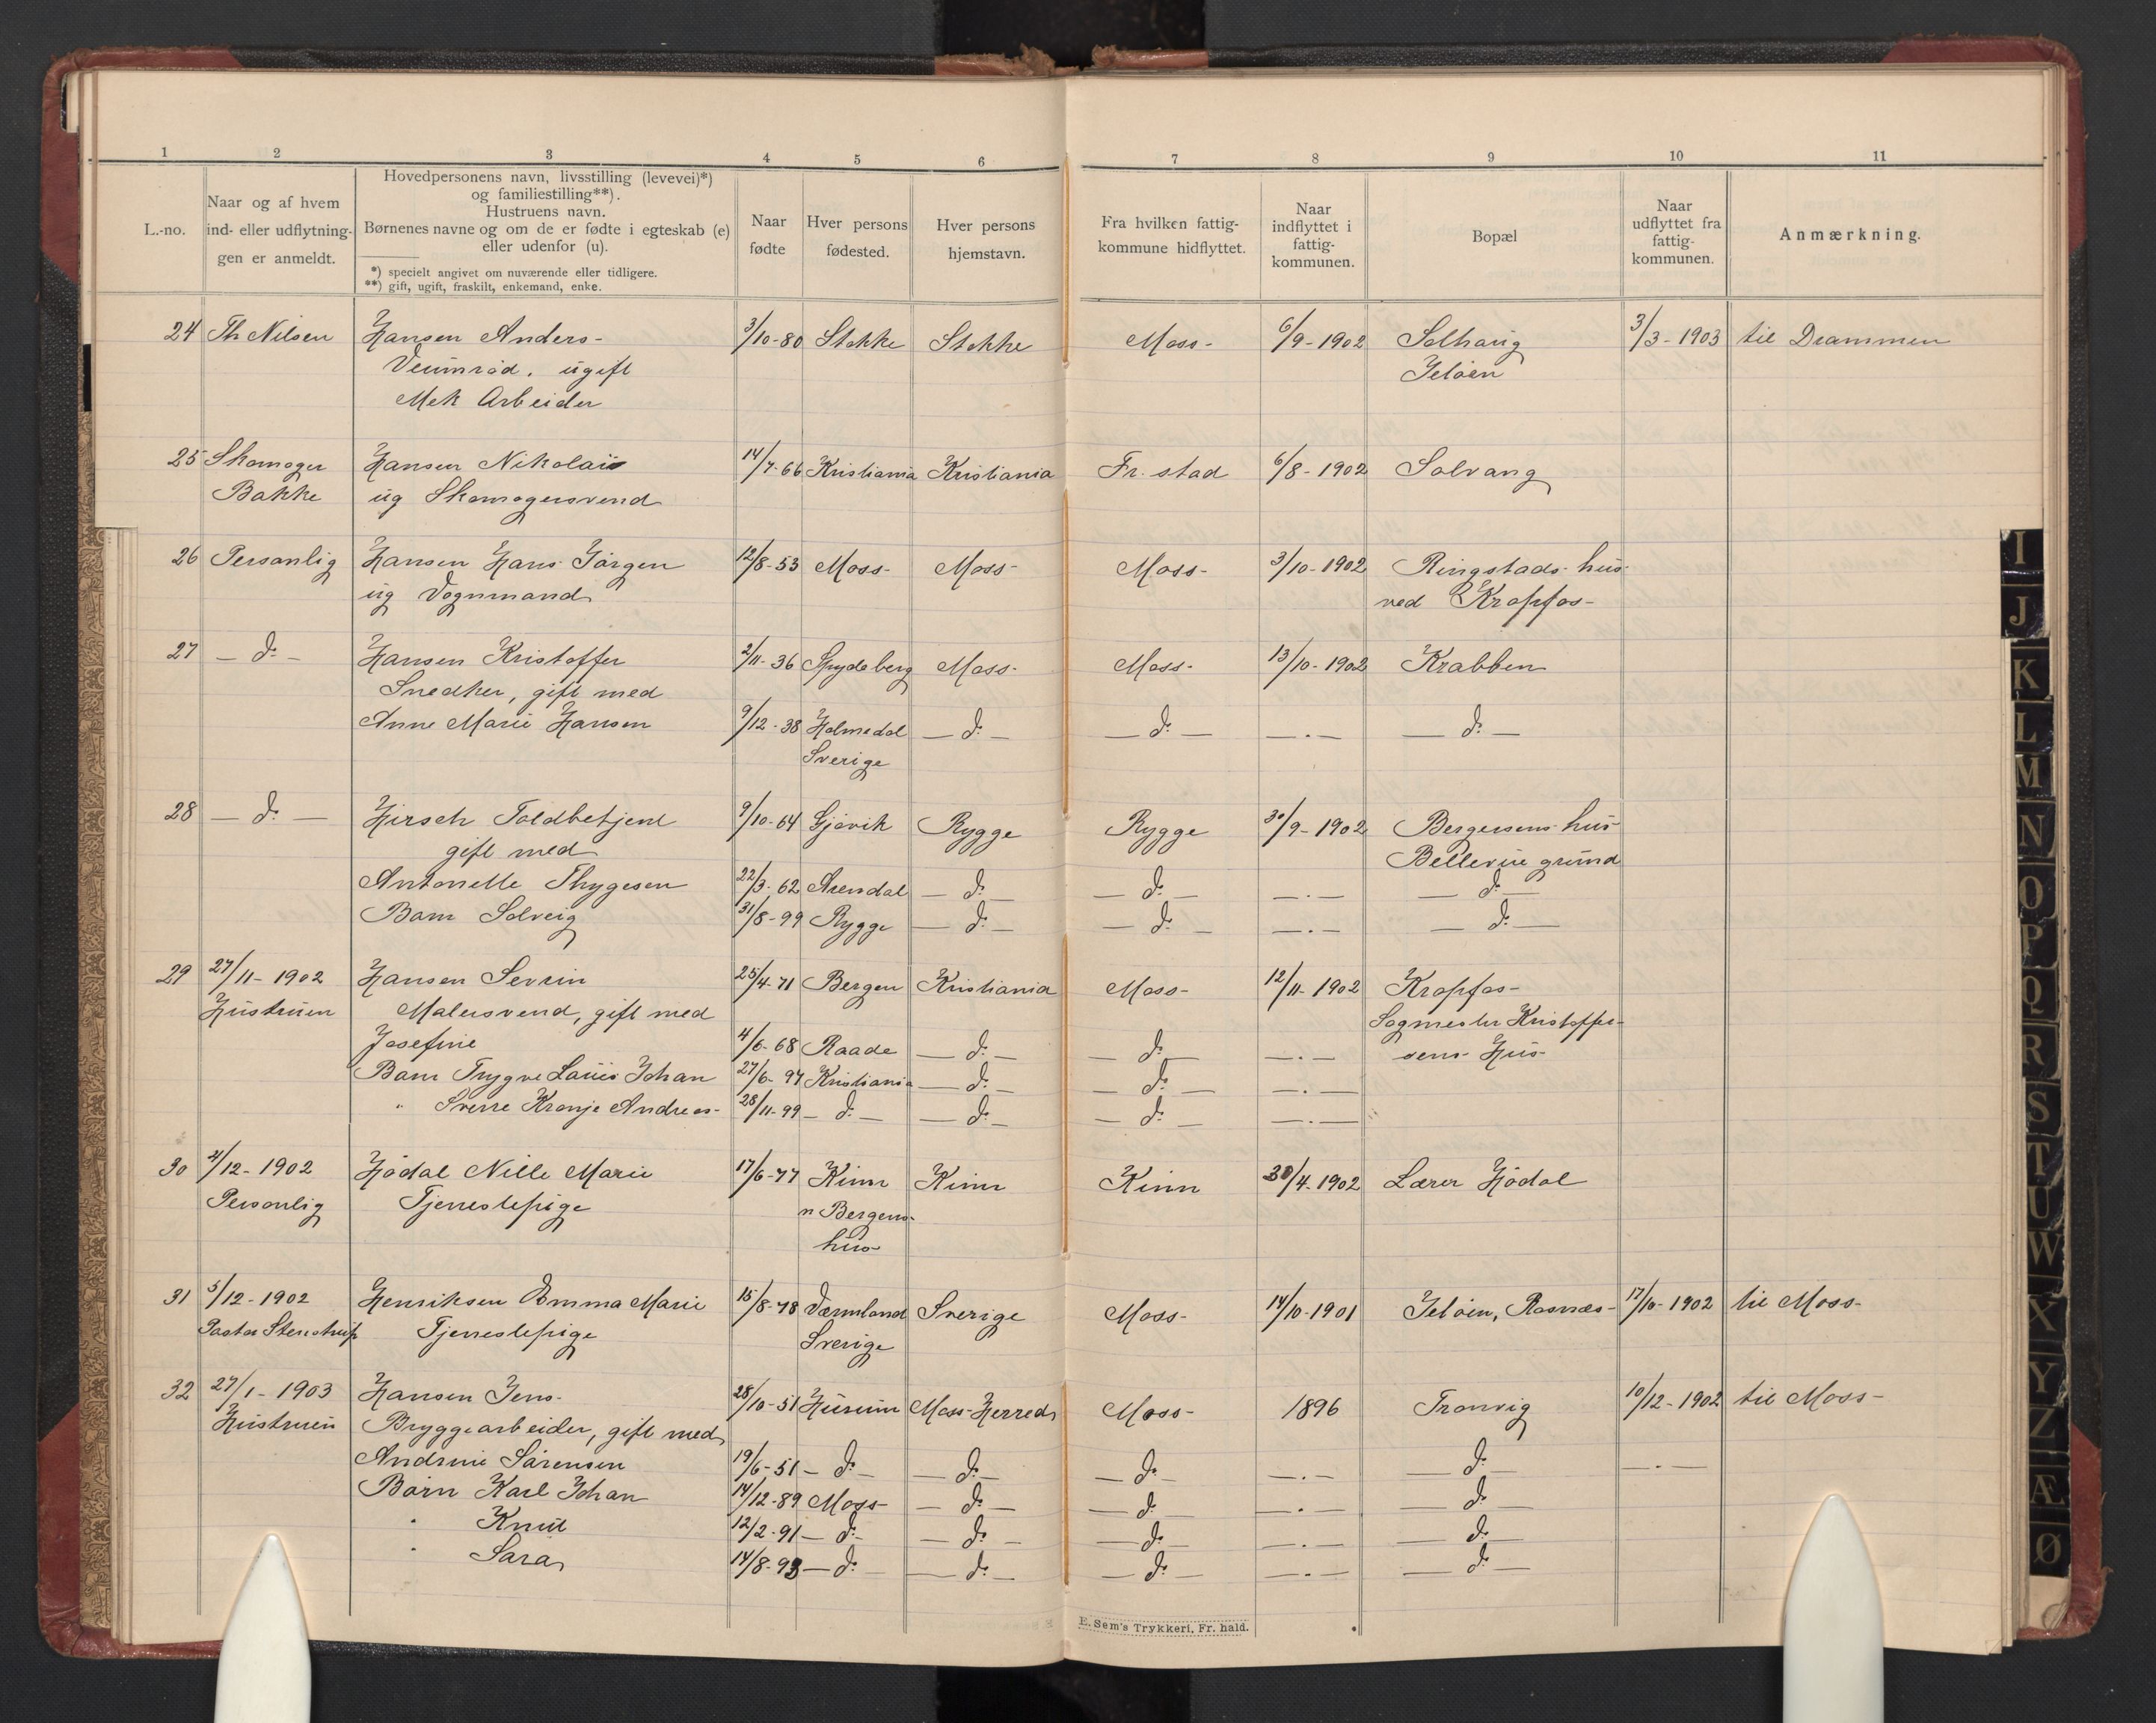 1 2 3 4 5 6 7 8 9 10 11
L.-no.
Naar og af hvem
ind- eller udflytnin-
gen er anmeldt.
Hovedpersonens navn, livsstilling (levevei)*)
og familiestilling**).
Hustruens navn.
Børnenes navne og om de er fødte i egteskab (e)
eller udenfor (u).
*) specielt angivet om nuværende eller tidligere.
**) gift, ugift, fraskilt, enkemand, enke.
Naar
fødte
Hver persons
fødested.
Hver persons
hjemstavn.
Fra hvilken fattig-
kommune hidflyttet.
Naar
indflyttet i
fattig-
kommunen.
Bopæl
Naar
udflyttet fra
fattig-
kommunen.
Anmærkning.
24 Th Nilsen Hansen Anders- 3/10-80 Stokke Stokke Moss- 6/9-1902 Solhaug 3/3-1903 til Drammen
Veumrød. ugift Jeløen
Mek Arbeider
25 Skomager Hansen Nikolai 14/7-66 Kristiania Kristiania Fr. stad 6/8-1902 Solvang
Bakke ug Skomagersvend
26 Personlig Hansen Hans Jørgen 12/8-53 Moss- Moss- Moss- 3/10-1902 Ringstads hus
ug Vognmand ved Kropfos-
27 - do - Hansen Kristoffer 2/11-36 Spydeberg Moss- Moss- 13/10-1902 Krabben
Snedker, gift med
Anne Marie Hansen 9/12-38 Holmedal - do - - do - - . - - do -
Sverige
28 - do - Hirsch Toldbetjent 9/10-64 Gjøvik Rygge Rygge 30/9-1902 Bergersens hus
gift med Bellevue grund
Antonette Thygesen 22/3-62 Arendal - do - - do - - . - - do -
Barn Solveig 31/8-99 Rygge - do - - do - - . - - do -
29 27/11-1902 Hansen Sevrin 25/4-71 Bergen Kristiania Moss- 12/11-1902 Kropfos-
Hustruen Malersvend, gift med Sagmester Kristoffer-
Josefine 4/6-68 Raade - do - - do - - . - sens Hus
Barn Trygve Louis Johan 27/6-97 Kristiania - do - - do - - . -
" Sverre Kronje Andreas- 28/11-99 - do - - do - - do - - . -
30 4/12-1902 Hødal Nille Marie 17/6-77 Kinn Kinn Kinn 30/4-1902 Lærer Hødal
Personlig Tjenestepige n Bergens-
hus
31 5/12-1902 Henriksen Emma Marie 15/8-78 Værmland Sverige Moss- 14/10-1901 Jeløen, Rosnæs- 17/10-1902 til Moss-
Pastor Stenstrup Tjenestepige Sverige
32 27/1-1903 Hansen Jens- 28/10-51 Hurum Moss Herred Moss- 1896 Tronvig 10/12-1902 til Moss-
Hustruen Bryggearbeider, gift med
Andrine Sørensen 19/6-51 - do - - do - - do - - . - - do - - . -
Børn Karl Johan 14/12-89 Moss- - do - - do - - . - - do -
" Knut 12/2-91 - do - - do - - do - - . - - do -
" Sara 14/8-93 - do - - do - - do - - . - - do -
E. Sem's Trykkeri, Fr. hald.
I
J
K
L
M
N
O
P
Q
R
S
T
U
W
X
Y
Z
Æ
Ø